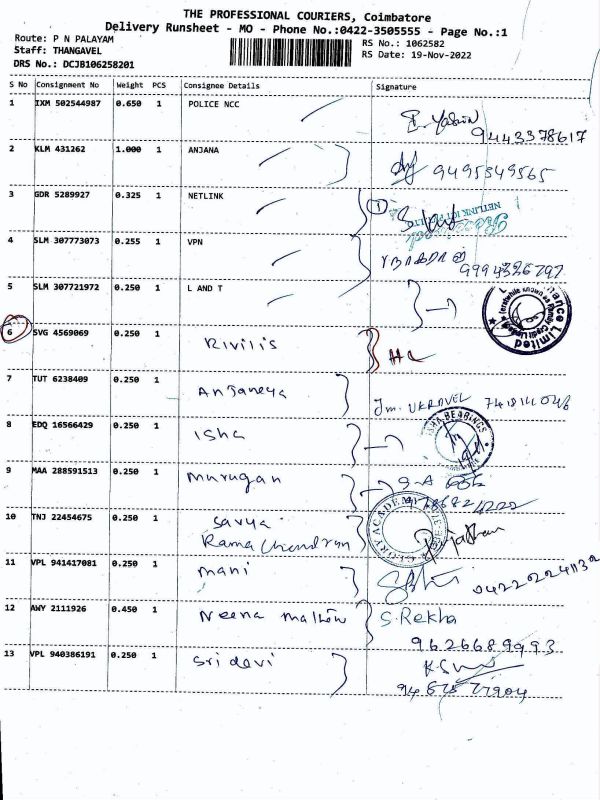 THE PROFESSIONAL COURIERS, Coimbatore
Delivery Runsheet - MO - Phone No.:0422-3505555 - Page No.:1
Route: P N PALAYAM
Staff: THANGAVEL
DRS No.: DCJB106258201
RS No.: 1062582
RS Date: 19-Nov-2022
S No Consignment No Weight PCS Consignee Details Signature
1 IXM 502544987 0.650 1 POLICE NCC
9443378617
2 KLM 431262 1.000 1 ANJANA
9495549565
3 GDR 5289927 0.325 1 NETLINK
NETLINK ICT PVT LTD
4 SLM 307773073 0.255 1 VPN
9994326797
5 SLM 307721972 0.250 1 L AND T
Limited
6 SVG 4569069 0.250 1 Rivilis
7 TUT 6238409 0.250 1 Anjaneya
8 EDQ 16566429 0.250 1 Isha
ISHA BEARINGS
9 MAA 288591513 0.250 1 Murugan
10 TNJ 22454675 0.250 1 Savya
Rama Chendran
ACADEMY
11 VPL 941417081 0.250 1 mani
12 AWY 2111926 0.450 1 Neena S.Rekha
9626689993
13 VPL 940386191 0.250 1 Sridevi